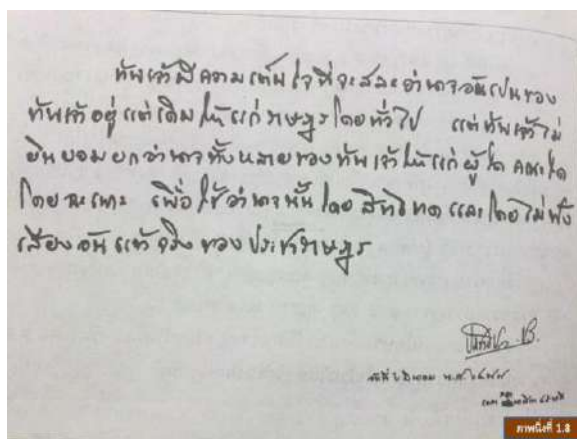 ข้าพเจ้ามีความเต็มใจที่จะสละอำนาจอันเป็นของ
ข้าพเจ้าอยู่แต่เดิมให้แก่ราษฎรโดยทั่วไป แต่ข้าพเจ้าไม่
ยินยอมยกอำนาจทั้งหลายของข้าพเจ้าให้แก่ผู้ใด คณะใด
โดยฉะเพาะ เพื่อใช้อำนาจนั้นโดยสิทธิขาด และโดยไม่ฟัง
เสียงอันแท้จริงของประชาราษฎร
ภาพนิ่งที่ 1.8